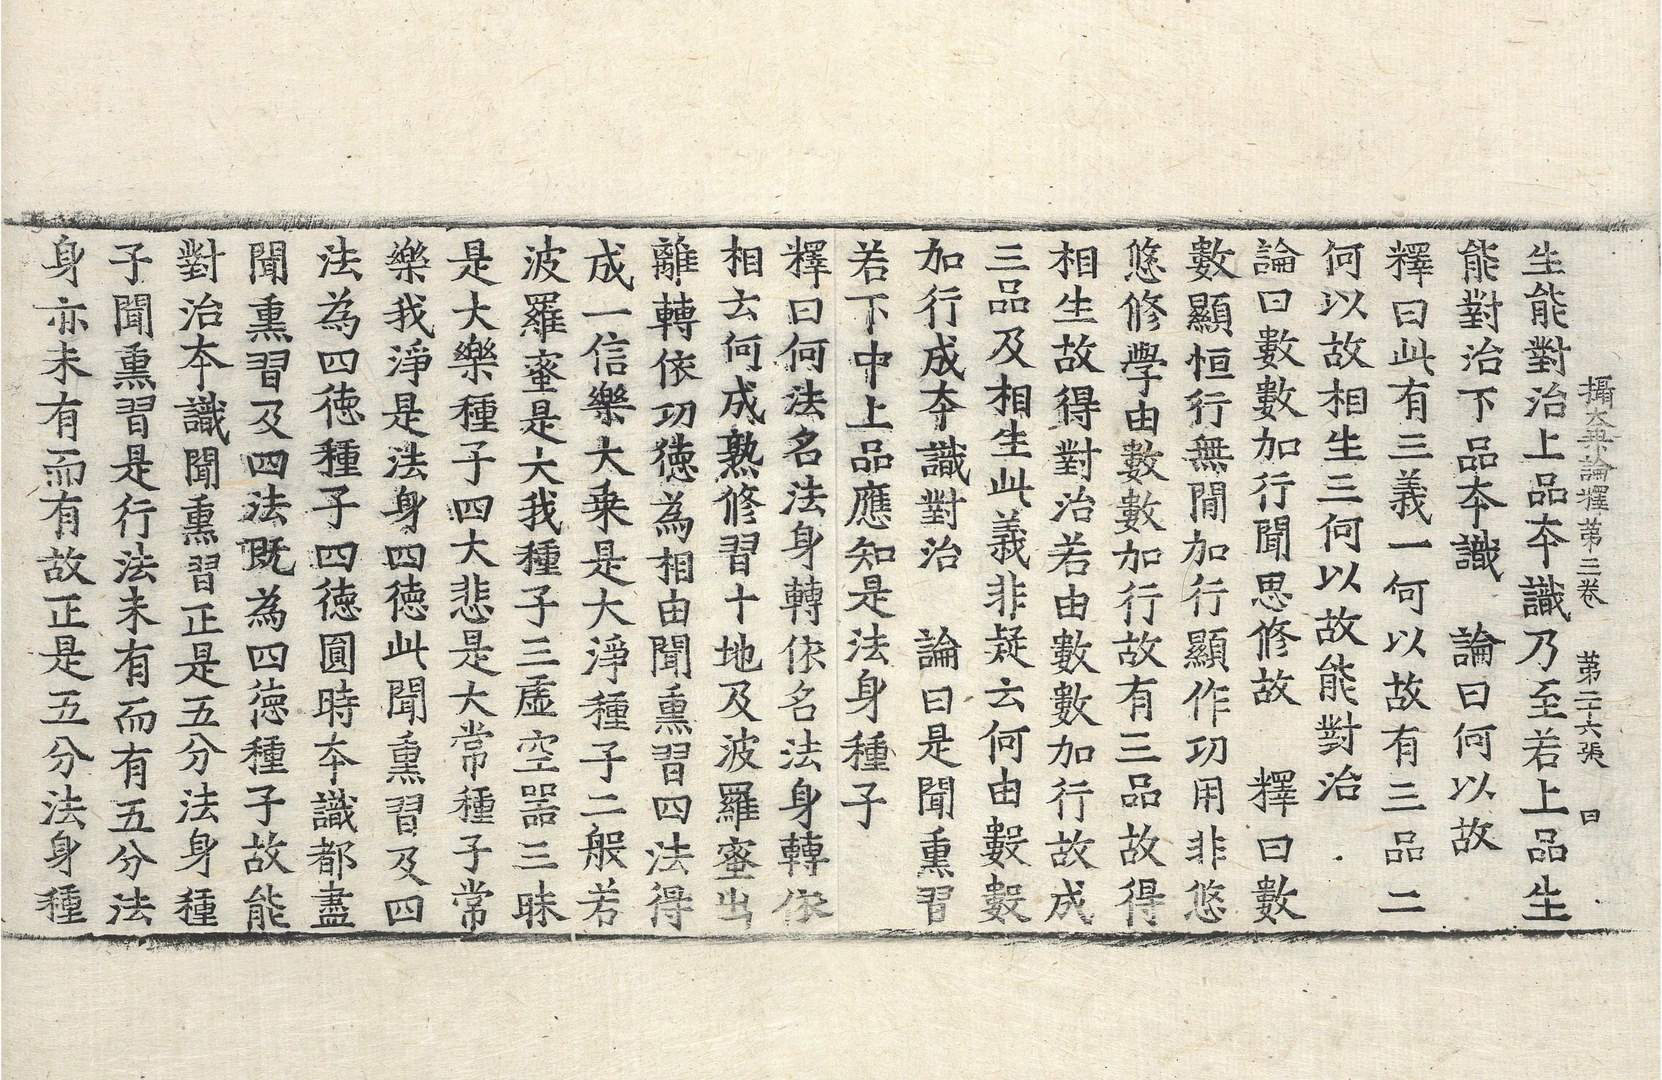 攝大乗論釋第三卷　第二十六張　日
生能對治上品夲識乃至若上品生
能對治下品夲識　論曰何以故
釋曰此有三義一何以故有三品二
何以故相生三何以故能對治
論曰數數加行聞思修故　釋曰數
數顯恒行無閒加行顯作功用非悠
悠修學由數數加行故有三品故得
相生故得對治若由數數加行故成
三品及相生此義非疑云何由數數
加行成夲識對治　論曰是聞熏習
若下中上品應知是法身種子
釋曰何法名法身轉依名法身轉依
相云何成熟修習十地及波羅蜜出
離轉依功徳為相由聞熏習四法得
成一信樂大乗是大淨種子二般若
波羅蜜是大我種子三虛空器三昧
是大樂種子四大悲是大常種子常
樂我淨是法身四徳此聞熏習及四
法為四徳種子四徳圓時夲識都盡
聞熏習及四法既為四徳種子故能
對治夲識聞熏習正是五分法身種
子聞熏習是行法未有而有五分法
身亦未有而有故正是五分法身種